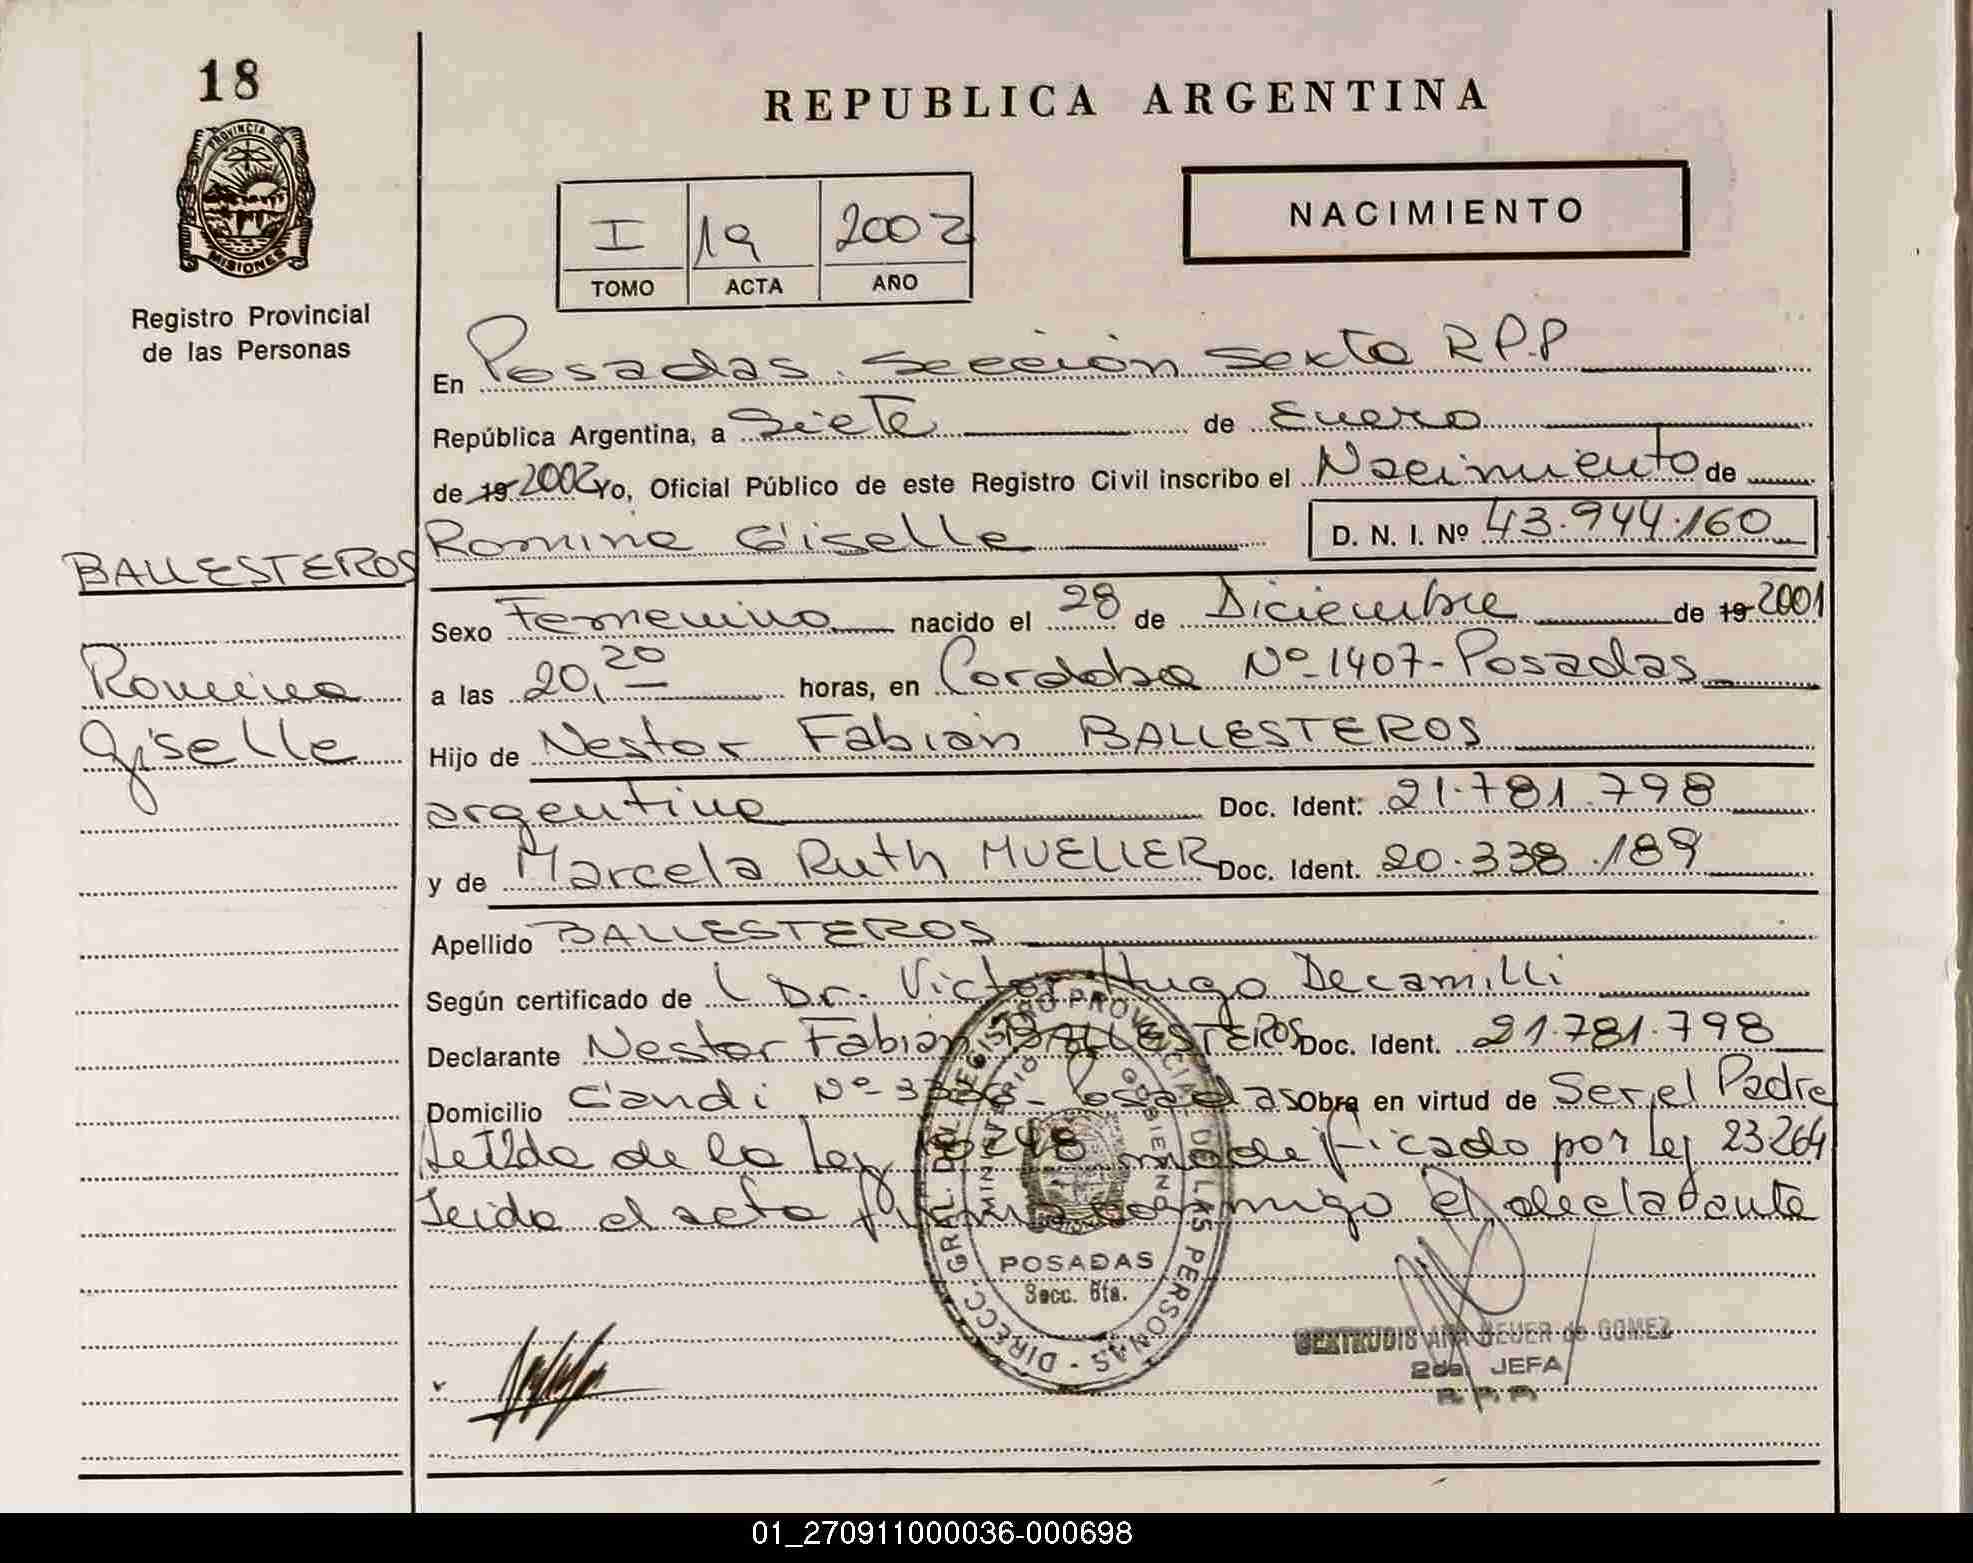 18
PROVINCIA DE
MISIONES
Registro Provincial
de las Personas
REPUBLICA ARGENTINA
I 19 2002
TOMO ACTA AÑO
NACIMIENTO
En Posadas. Sección Sexta R.P.P
República Argentina, a Siete de Enero
de 19 2002 Yo, Oficial Público de este Registro Civil inscribo el Nacimiento de
Romina Giselle D. N. I. Nº 43.944.160
BALLESTEROS
Romina
Giselle
Sexo Femenino nacido el 28 de Diciembre de 19 2001
a las 20,20 horas, en Cordoba Nº 1407- Posadas
Hijo de Nestor Fabián BALLESTEROS
argentino Doc. Ident: 21.781.798
y de Marcela Ruth MUELLER Doc. Ident. 20.338.189
Apellido BALLESTEROS
Según certificado de Dr. Victor Hugo Decamilli
Declarante Nestor Fabián BALLESTEROS Doc. Ident. 21.781.798
Domicilio Gandi Nº Posadas Obra en virtud de Ser el Padre
de la Ley modificado por Ley 23264
Leida el acta firma conmigo el declarante
DIRECC. GRAL. DEL REGISTRO PROVINCIAL DE LAS PERSONAS -
MINISTERIO GOBIERNO
POSADAS
Secc. 6ta.
GERTRUDIS ANA BEUER de GOMEZ
2da. JEFA
R. P. P.
01_270911000036-000698